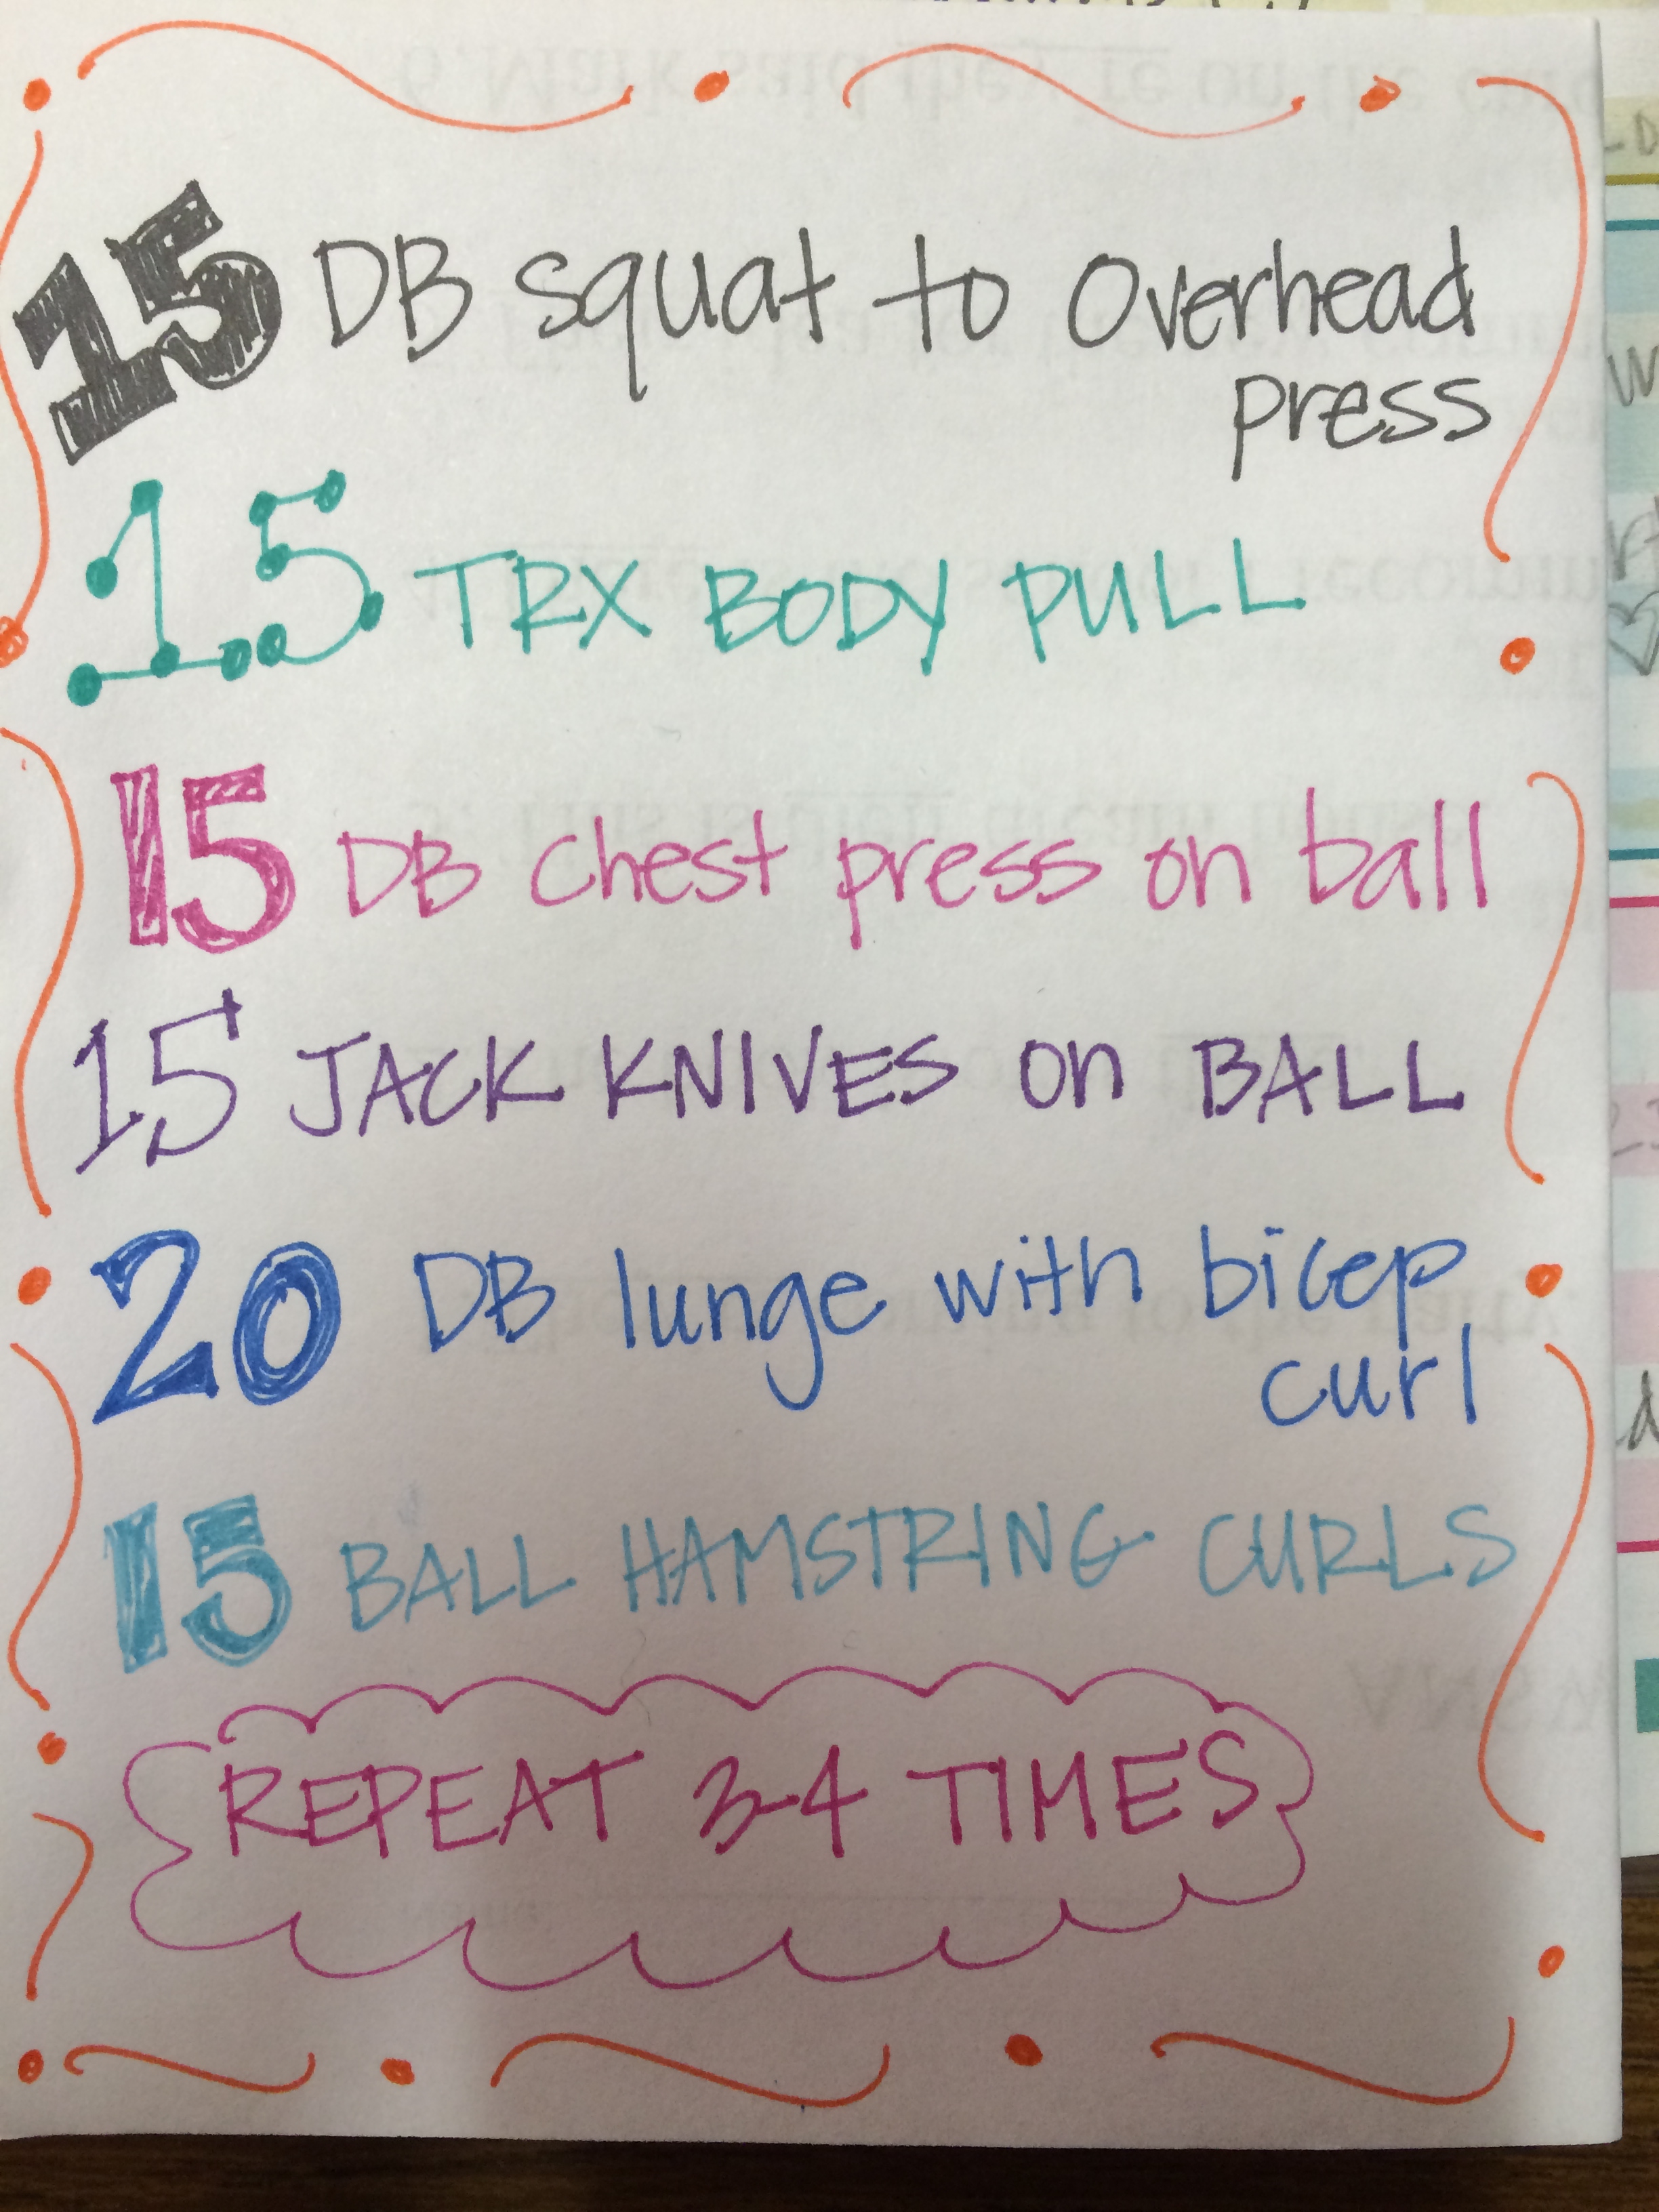 15 DB squat to Overhead
press
15 TRX BODY PULL
15 DB chest press on ball
15 JACK KNIVES on BALL
20 DB lunge with bicep
curl
15 BALL HAMSTRING CURLS
REPEAT 3-4 TIMES